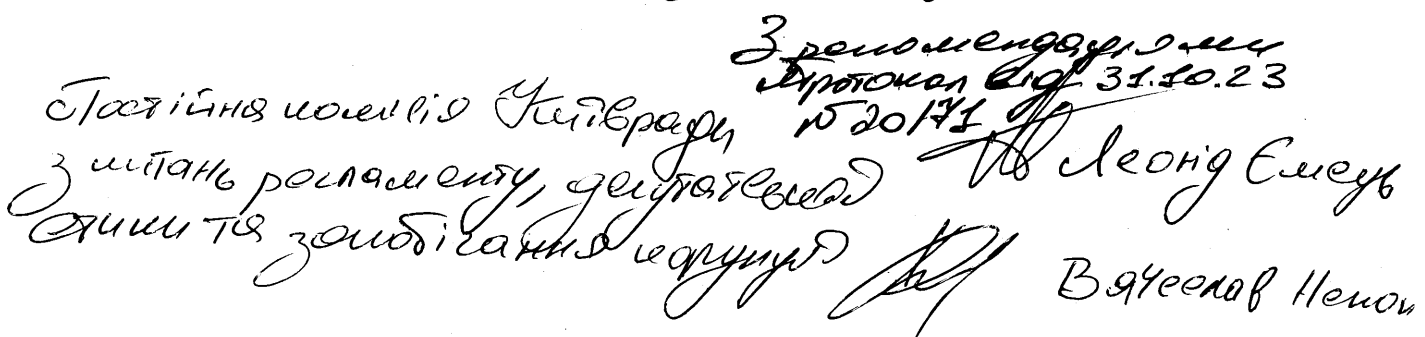 З рекомендаціями
Протокол від 31.10.23
№ 20/71
Постійна комісія Київради
з питань регламенту, депутатської
етики та запобігання корупції
Леонід Ємець
Вячеслав Непоп